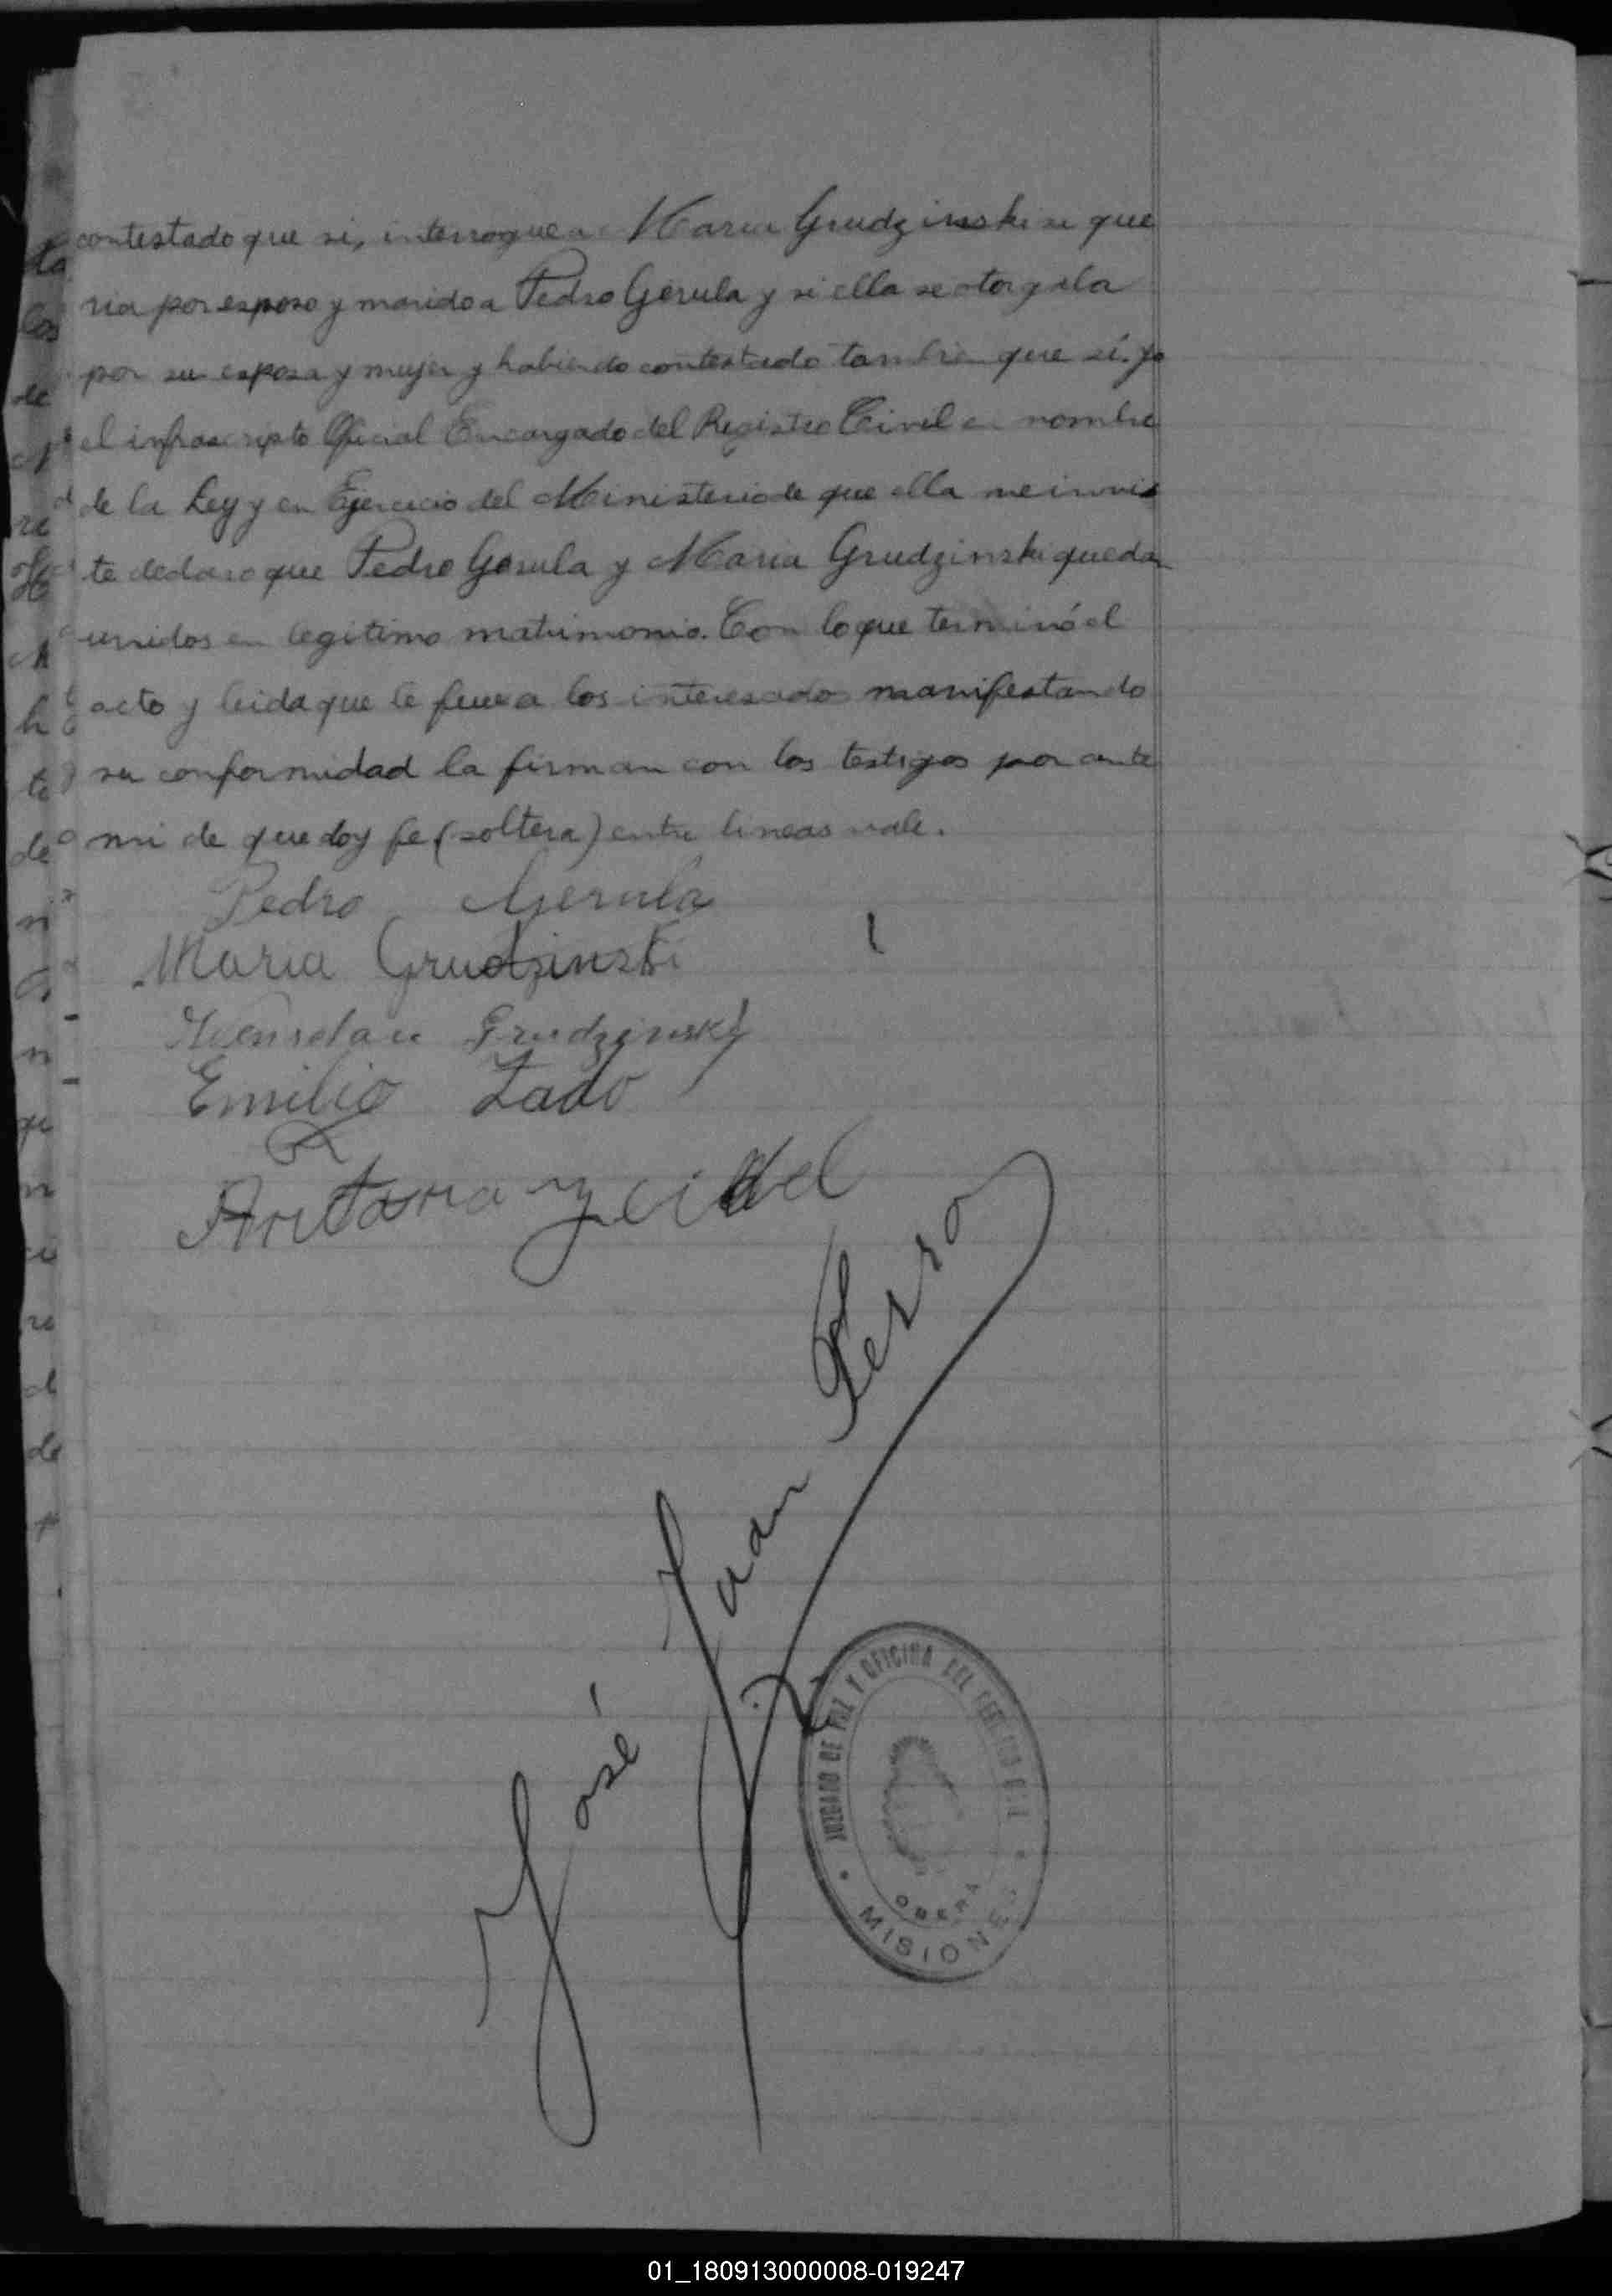 contestado que si, interrogue a Maria Grudzinski si que
ria por esposo y marido a Pedro Gerula y si ella se otorgaba
por su esposa y mujer y habiendo contestado tambien que sí. yo
el infrascripto Oficial Encargado del Registro Civil en nombre
de la Ley y en Ejercicio del Ministerio de que ella me invis
te declaro que Pedro Gerula y Maria Grudzinski quedan
unidos en legitimo matrimonio. Con lo que terminó el
acto y leida que le fue a los interesados manifestando
su conformidad la firman con los testigos por ante
mi de que doy fe (soltera) entre lineas vale.
Pedro Gerula
Maria Grudzinski
Grudzinsky
Emilio Zado
José Juan Perso
JUZGADO DE PAZ Y OFICINA DEL REGISTRO CIVIL
OBERA
MISIONES
01_180913000008-019247